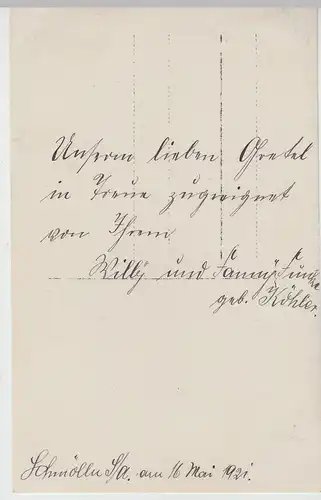 Unserm lieben Gretel
in Treue zugeeignet
von Ihrem
Willy und Fanny Funke
geb. Köhler.
Schmölln S/A. am 16 Mai 1921.